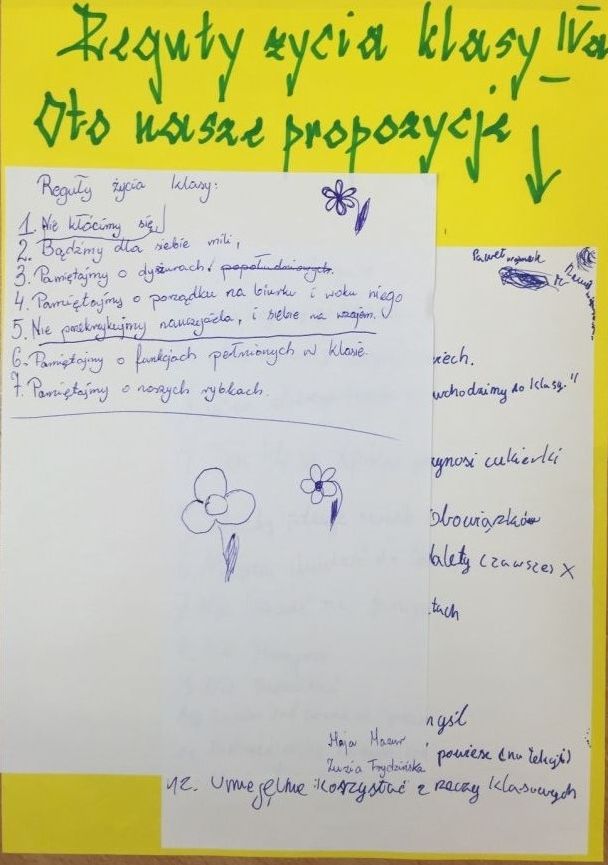 Reguły życia klasy IVa
Oto nasze propozycje
Reguły życia klasy:
1. Nie kłócimy się
2. Bądźmy dla siebie mili,
3. Pamiętajmy o dyżurach. popołudniowych.
4. Pamiętajmy o porządku na biurku i woku niego
5. Nie przekrykujmy nauczyciela, i siebie na wzajem.
6. Pamiętajmy o funkcjach pełnionych w klasie.
7. Pamiętajmy o naszych rybkach.
Paweł
iech.
wchodzimy do klasy."
ynosi cukierki
obowiązków
alety (zawsze) X
tach
myśl
powiesz (na lekcji)
Maja Mazur
Zuzia Trydzińska
12. Umiejętnie koszystać z rzeczy klasowych